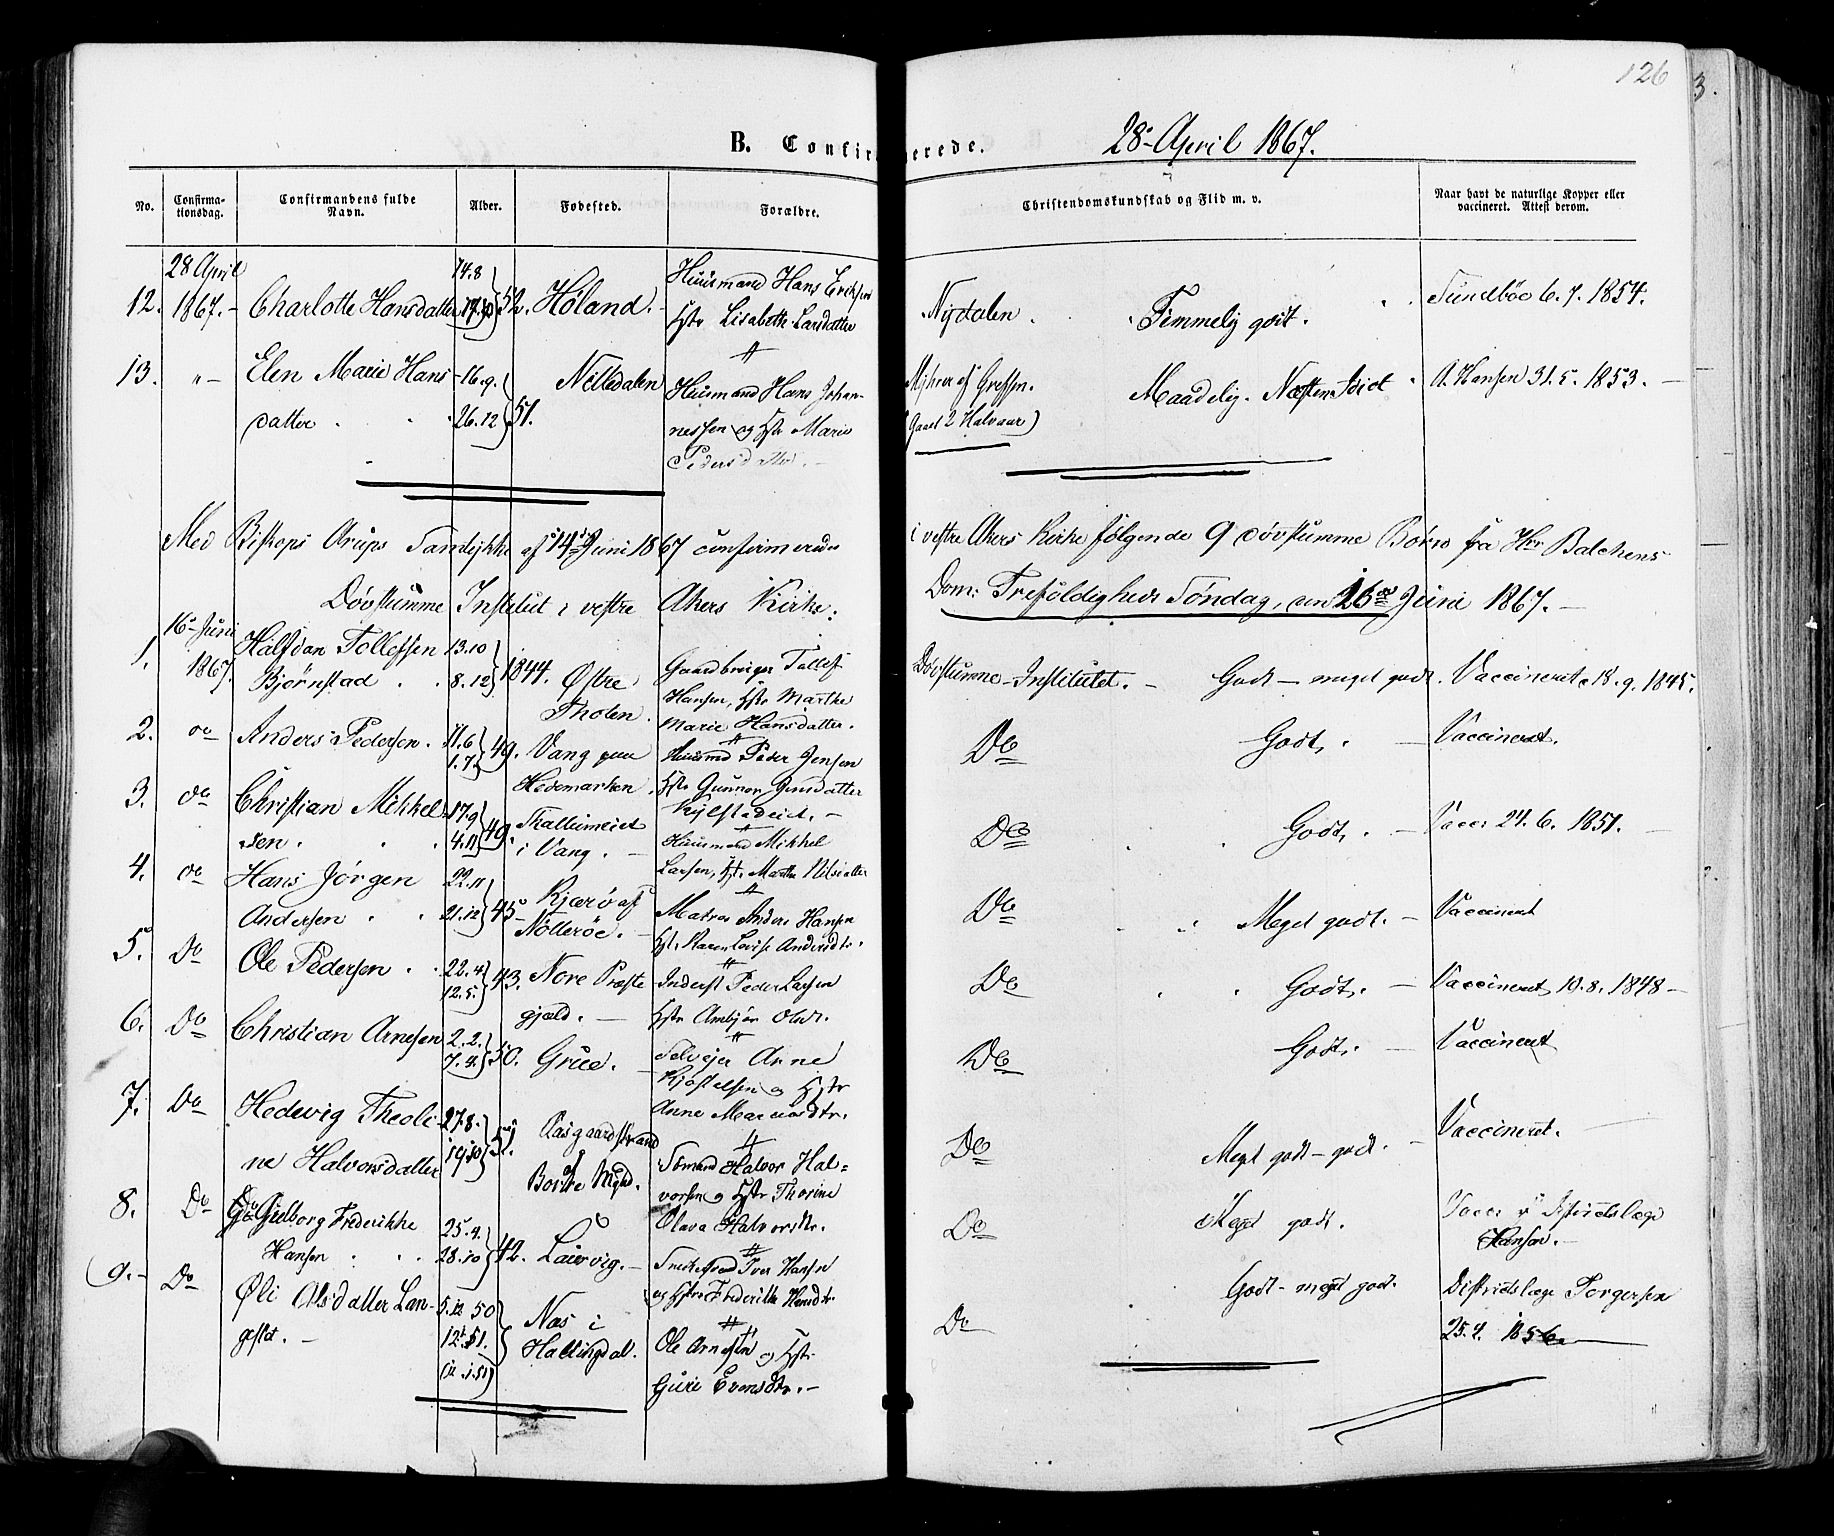 126
3.
B. Confirmerede.
28de April 1867.
No.
Confirma-
tionsdag.
Confirmandens fulde
Navn.
Alder.
Fødested.
Forældre.
Christendomskundskab og Flid m. v.
Naar havt de naturlige Kopper eller
vaccineret. Attest derom.
28 April
12. 1867.- Charlotte Hansdatter 14.8 52. Høland.
Huusmand Hans Eriksen
Hstr Lisabethe Larsdatter
Nydalen Temmelig godt. Sundbøe 6.7.1854.
13. "- Elen Marie Hans
datter 16.9. 26.12 51. Nittedalen
Huusmand Hans Johan-
nessen og Hstr Marie
Pedersdatter.
af Grefsen.
(Gaaet 2 Halvaar)
Maadelig. Næsten Idiot A. Hansen 31.5.1853.
Med Biskops Arups Samtykke af 14de Juni 1867 confirmeredes i vestre Akers Kirke følgende 9 døvstumme Børn fra Hr Balchens
Døvstumme Institut i vestre Akers Kirke: Dom: Trefoldigheds Søndag, den 16de Juni 1867.
16-Juni
1. 1867. Halfdan Tollefsen
Bjørnstad 13.10 8.12 1844. Østre
Thoten.
Gaardbruger Tollef
Hansen, Hstr Marthe
Marie Hansdatter.
Døvstumme-Institutet. Godt - meget godt. Vaccineret 18.9.1845.
2. do Anders Pedersen. 11.6 1.7. 49. Vang paa
Hedemarken
Huusmd Peder Jensen
Hstr Gunnor Gunsdatter
Kylstadeiet.
Do Godt. Vaccineret.
3. do Christian Mikkel
sen. 17.9 4.11 49. Thallumeiet
i Vang.
Huusmand Mikkel
Larsen, Hstr Marthe Nilsdatter
Do Godt. Vacc. 24.6.1851.
4. do Hans Jørgen
Andersen 22.11 21.12 45 Kjærø af
Nøtterøe.
Matros Anders Hansen
Hstr Karen Lovise Andersdtr.
Do Meget godt. Vaccineret
5. Do Ole Pedersen 22.4. 12.5. 43. Nore Præste
gjæld.
Inderst Peder Larsen
Hstr Ambjør Olsdr.
Do Godt. Vaccineret 10.8.1848
6. Do Christian Arnesen 2.2. 7.4. 50. Grue.
Selveier Arne
Kjøstelsen og Hstr
Anne Mariusdtr.
Do Godt. Vaccineret
7. Do Hedevig Theoli-
ne Halvorsdatter 27.8. 19.10 51. Aasgaardstrand
af
Borre Mgd.
Sømand Halvor Hal-
vorsen og Hstr Thorine
Olava Halvorsdtr.
Do Meget godt - godt. Vaccineret.
8. Do Gjelborg Frederikke
Hansen 25.9. 28.10 42. Laurvig.
Snedkersvend Iver Hansen
og Hstru Frederikke Hansdtr.
Do Meget godt. Vacc v Districtslæge
Hansen.
9. Do Øli Olsdatter Lan-
geslet. 5.12 50 12.1.51. (12.1.51) Næs i
Hallingdal.
Ole Arnesen og Hstr
Guri Evensdtr.
Do Godt - meget godt. Districtslæge Torgersen
25.7. 1856.